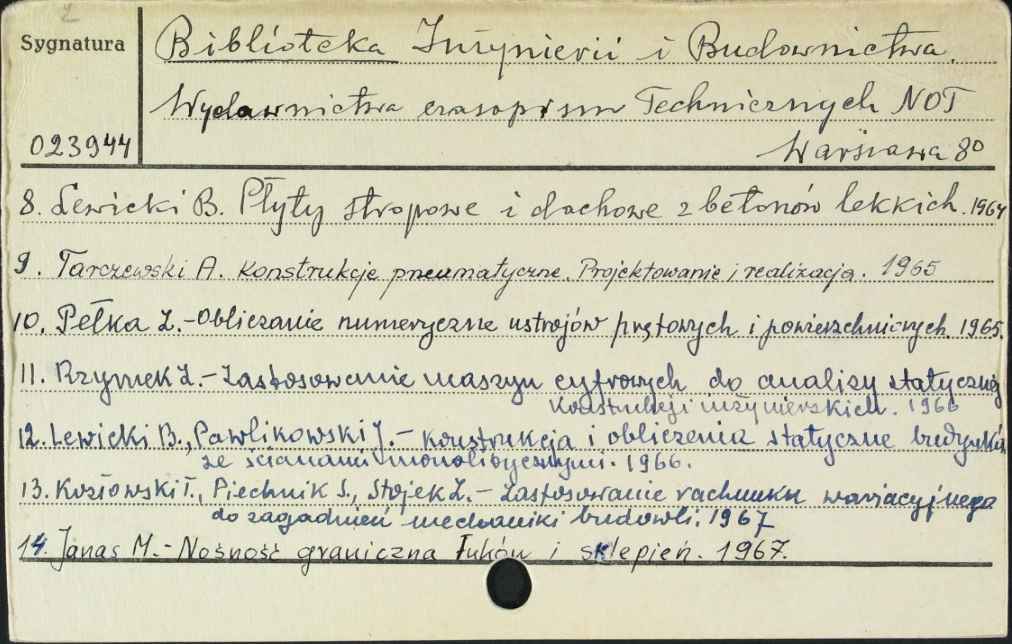 2
Sygnatura
Biblioteka Inżynierii i Budownictwa.
Wydawnictwa czasopism Technicznych NOT
023944
Warszawa 80
8. Lewicki B. Płyty stropowe i dachowe z betonów lekkich. 1964
9. Tarczewski A. Konstrukcje pneumatyczne. Projektowanie i realizacja. 1965
10. Pełka Z.-Obliczanie numeryczne ustrojów prętowych i powierzchniowych. 1965.
11. Rzymek Z.-Zastosowanie maszyn cyfrowych do analizy statycznej
Konstrukcji inżynierskich. 1966
12. Lewicki B., Pawlikowski J.- Konstrukcja i obliczenia statyczne budynków
ze ścianami monolitycznymi. 1966.
13. Kozłowski T., Piechnik S., Stojek Z.- Zastosowanie rachunku wariacyjnego
do zagadnień mechaniki budowli. 1967
14. Janas M.- Nośność graniczna łuków i sklepień. 1967.